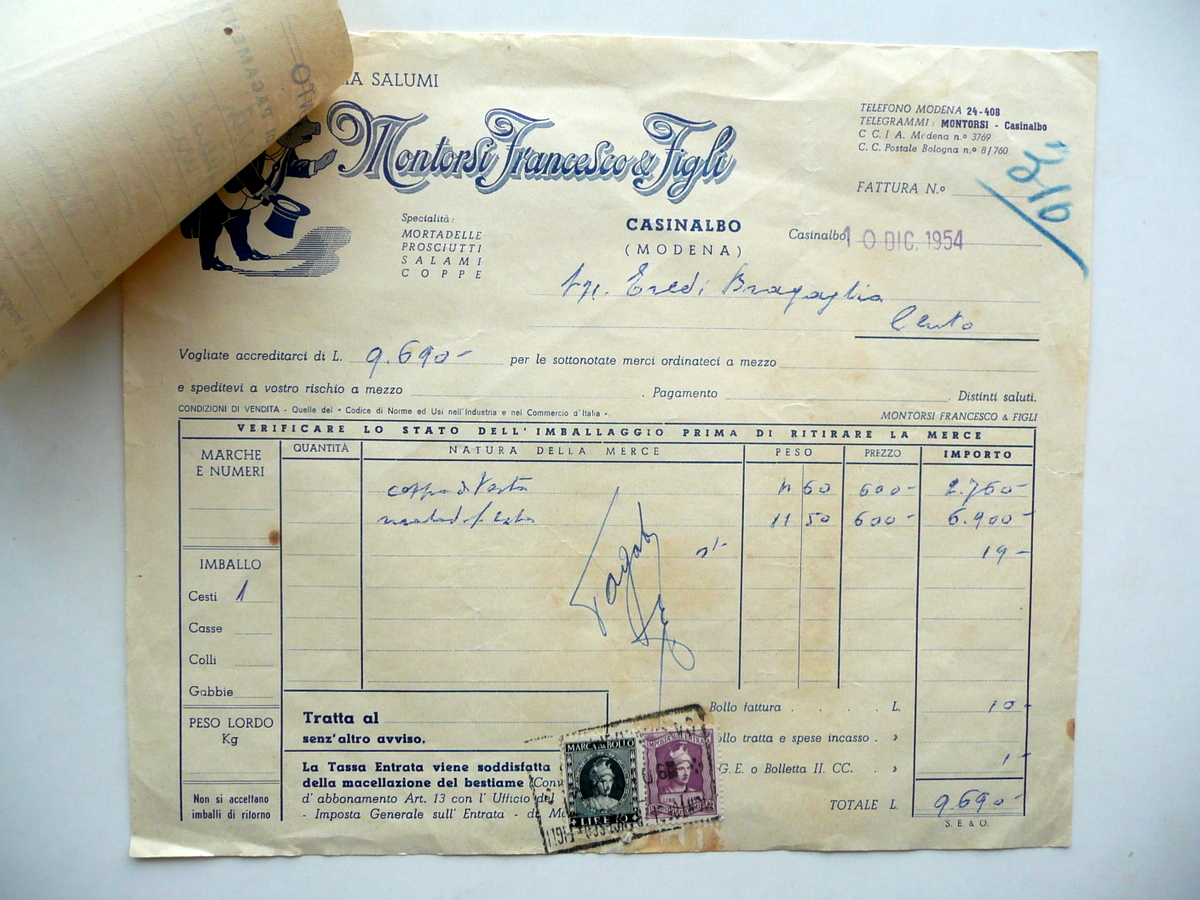 IA SALUMI
Montorsi Francesco & Figli
TELEFONO MODENA 24-408
TELEGRAMMI: MONTORSI - Casinalbo
C. C. I A. Modena n.º 3769
C. C. Postale Bologna n.º 8/760
FATTURA N.º
Specialità:
MORTADELLE
PROSCIUTTI
SALAMI
COPPE
CASINALBO
(MODENA)
Casinalbo 10 DIC. 1954
Eredi Bragaglia
Cento
Vogliate accreditarci di L. 9.690- per le sottonotate merci ordinateci a mezzo
e speditevi a vostro rischio a mezzo . Pagamento . Distinti saluti.
CONDIZIONI DI VENDITA - Quelle del « Codice di Norme ed Usi nell'Industria e nel Commercio d'Italia ». MONTORSI FRANCESCO & FIGLI
VERIFICARE LO STATO DELL'IMBALLAGGIO PRIMA DI RITIRARE LA MERCE
MARCHE E NUMERI
QUANTITÀ NATURA DELLA MERCE PESO PREZZO IMPORTO
4 60 600- 2.760-
11 50 600- 6.900-
19-
IMBALLO
Cesti 1
Casse
Colli
Gabbie
PESO LORDO
Kg
Non si accettano
imballi di ritorno
Tratta al
senz'altro avviso.
La Tassa Entrata viene soddisfatta
della macellazione del bestiame (Con
d'abbonamento Art. 13 con l'Ufficio del
- Imposta Generale sull'Entrata - de Mo
MARCA DA BOLLO
LIRE
IMPOSTA SULL'ENTRATA
LIRE
Bollo fattura . . . . L. 10-
ollo tratta e spese incasso . »
G. E. o Bolletta II. CC. . » 1-
TOTALE L. 9.690-
S. E. & O.